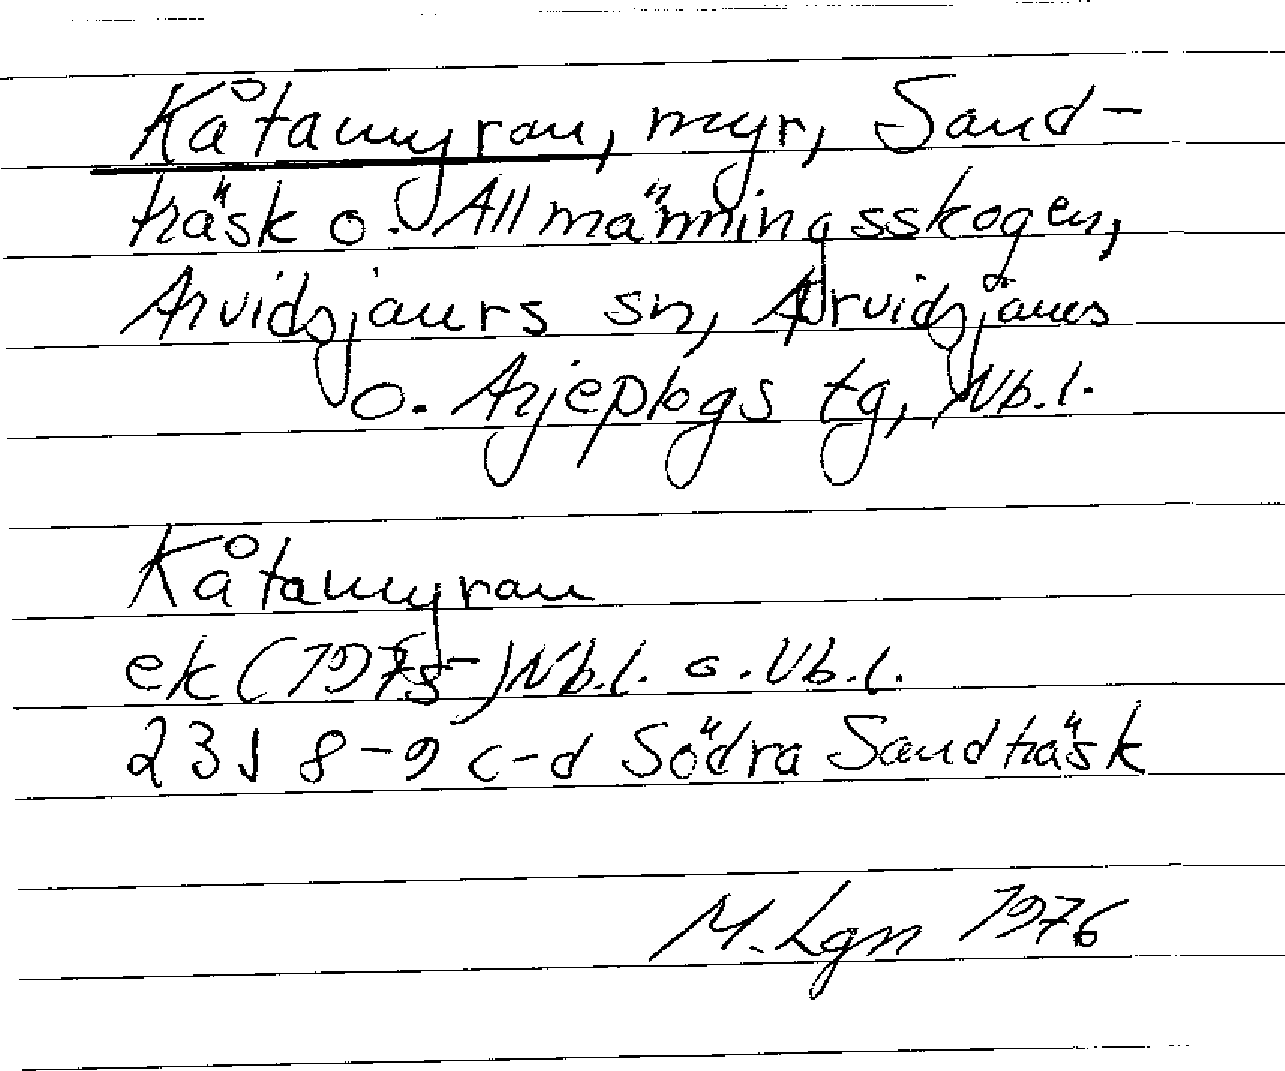 Kåtamyran, myr, Sand-
träsk o. Allmänningsskogen,
Arvidsjaurs sn, Arvidsjaurs
o. Arjeplogs tg, Nb.l.
Kåtamyran
ek (1975) Nb.l. o. Vb.l.
23J 8-9 c-d Södra Sandträsk
M. Lgn 1976